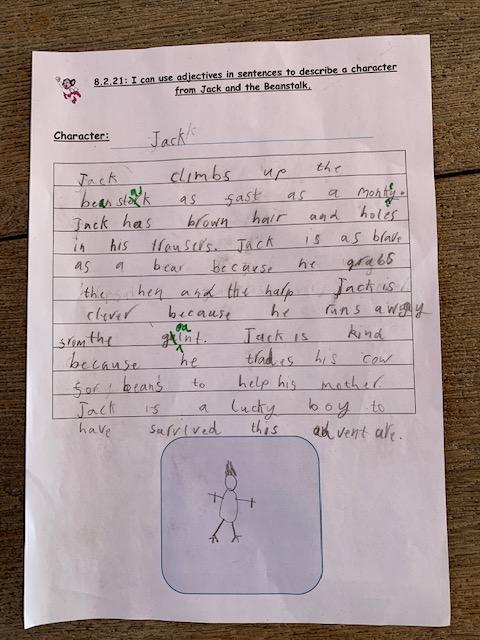 8.2.21: I can use adjectives in sentences to describe a character
from Jack and the Beanstalk.
Character: Jack
Jack climbs up the
beanstalk as fast as a monkey.
Jack has brown hair and holes
in his trousers. Jack is as brave
as a bear because he grabs
the hen and the harp Jack is
clever because he runs away
from the giant. Jack is kind
because he trades his cow
for beans to help his mother.
Jack is a lucky boy to
have survived this adventure.